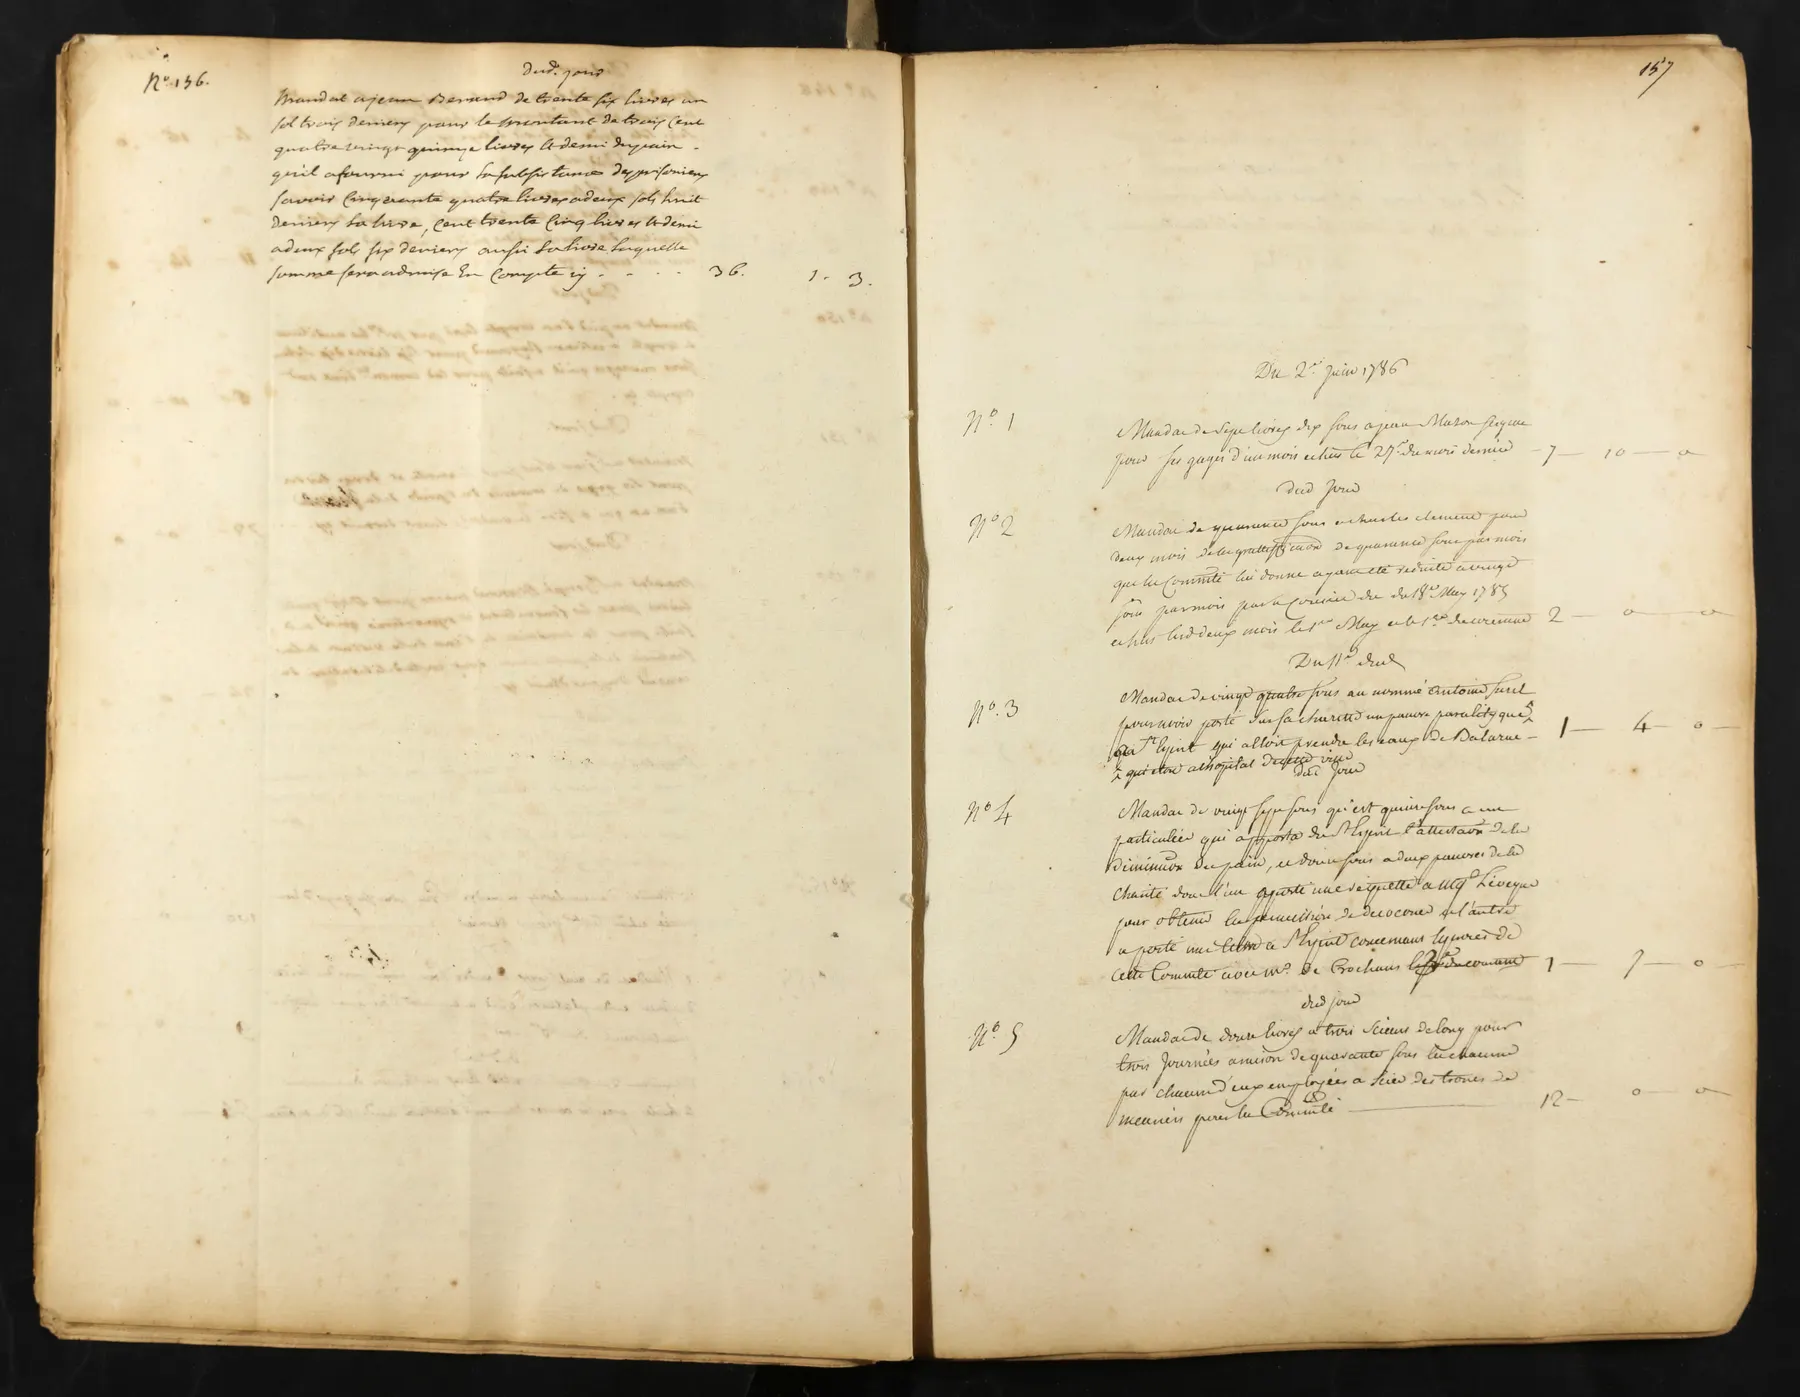 N.º 136.
dud. jour
Mandat a jean Bernard de trente six livres un
sol trois deniers pour le montant de trois cent
quatre vingt quinze livres & demi du pain
qu'il a fourni pour la subsistance des prisoniers
savoir cinquante quatre livres a deux sols huit
deniers la livre, cent trente cinq livres & demi
a deux sols six deniers aussi la livre laquelle
somme sera admise En Compte cy . . . . 36. 1. 3.
157
Du 2.e Juin 1786
N.º 1
Mandat de sept livres dix sous a jean Mason
pour ses gages d'un mois echus le 27.e du mois dernier - 7 — 10 — 0
dud Jour
Nº 2
Mandat de quarante sous a charles clement pour
deux mois de la gratiffication de quarante sous par mois
que la Commté lui donne ayant eté reduite a vingt
sous par mois par la du 18.e May 1785
echus lesd deux mois le 1.er May et le 1.er du courant 2 — 0 — 0
Du 11.e dud
Nº. 3
Mandat de vingt quatre sous au nommé antoine
pour avoir porté sur sa charette un pauvre paralityque
au St Esprit qui alloit prendre les eaux de Balaruc - 1 — 4 — 0 —
qui etoit a l'hopital de cette ville
dud Jour
Nº 4
Mandat de vingt sept sous qu'est quinze sous a un
particulier qui apporta du St Esprit l'attestaõn de la
diminuõn du pain, et douze sous a deux pauvres de la
charité dont l'un a porté une requette a Mgr L'évèque
pour obtenir la permission de et l'autre
a porté une lettre a St Esprit concernant de
cette Commté avec Mr. de Crochans 1 — 7 — 0
dud jour
Nº. 5
Mandat de douze livres a trois Scieurs de long pour
trois Journées a raison de quarante sous la chacune
par chacun d'eux employées a Scier des troncs de
meuriers pour la Commté — 12 — 0 — 0